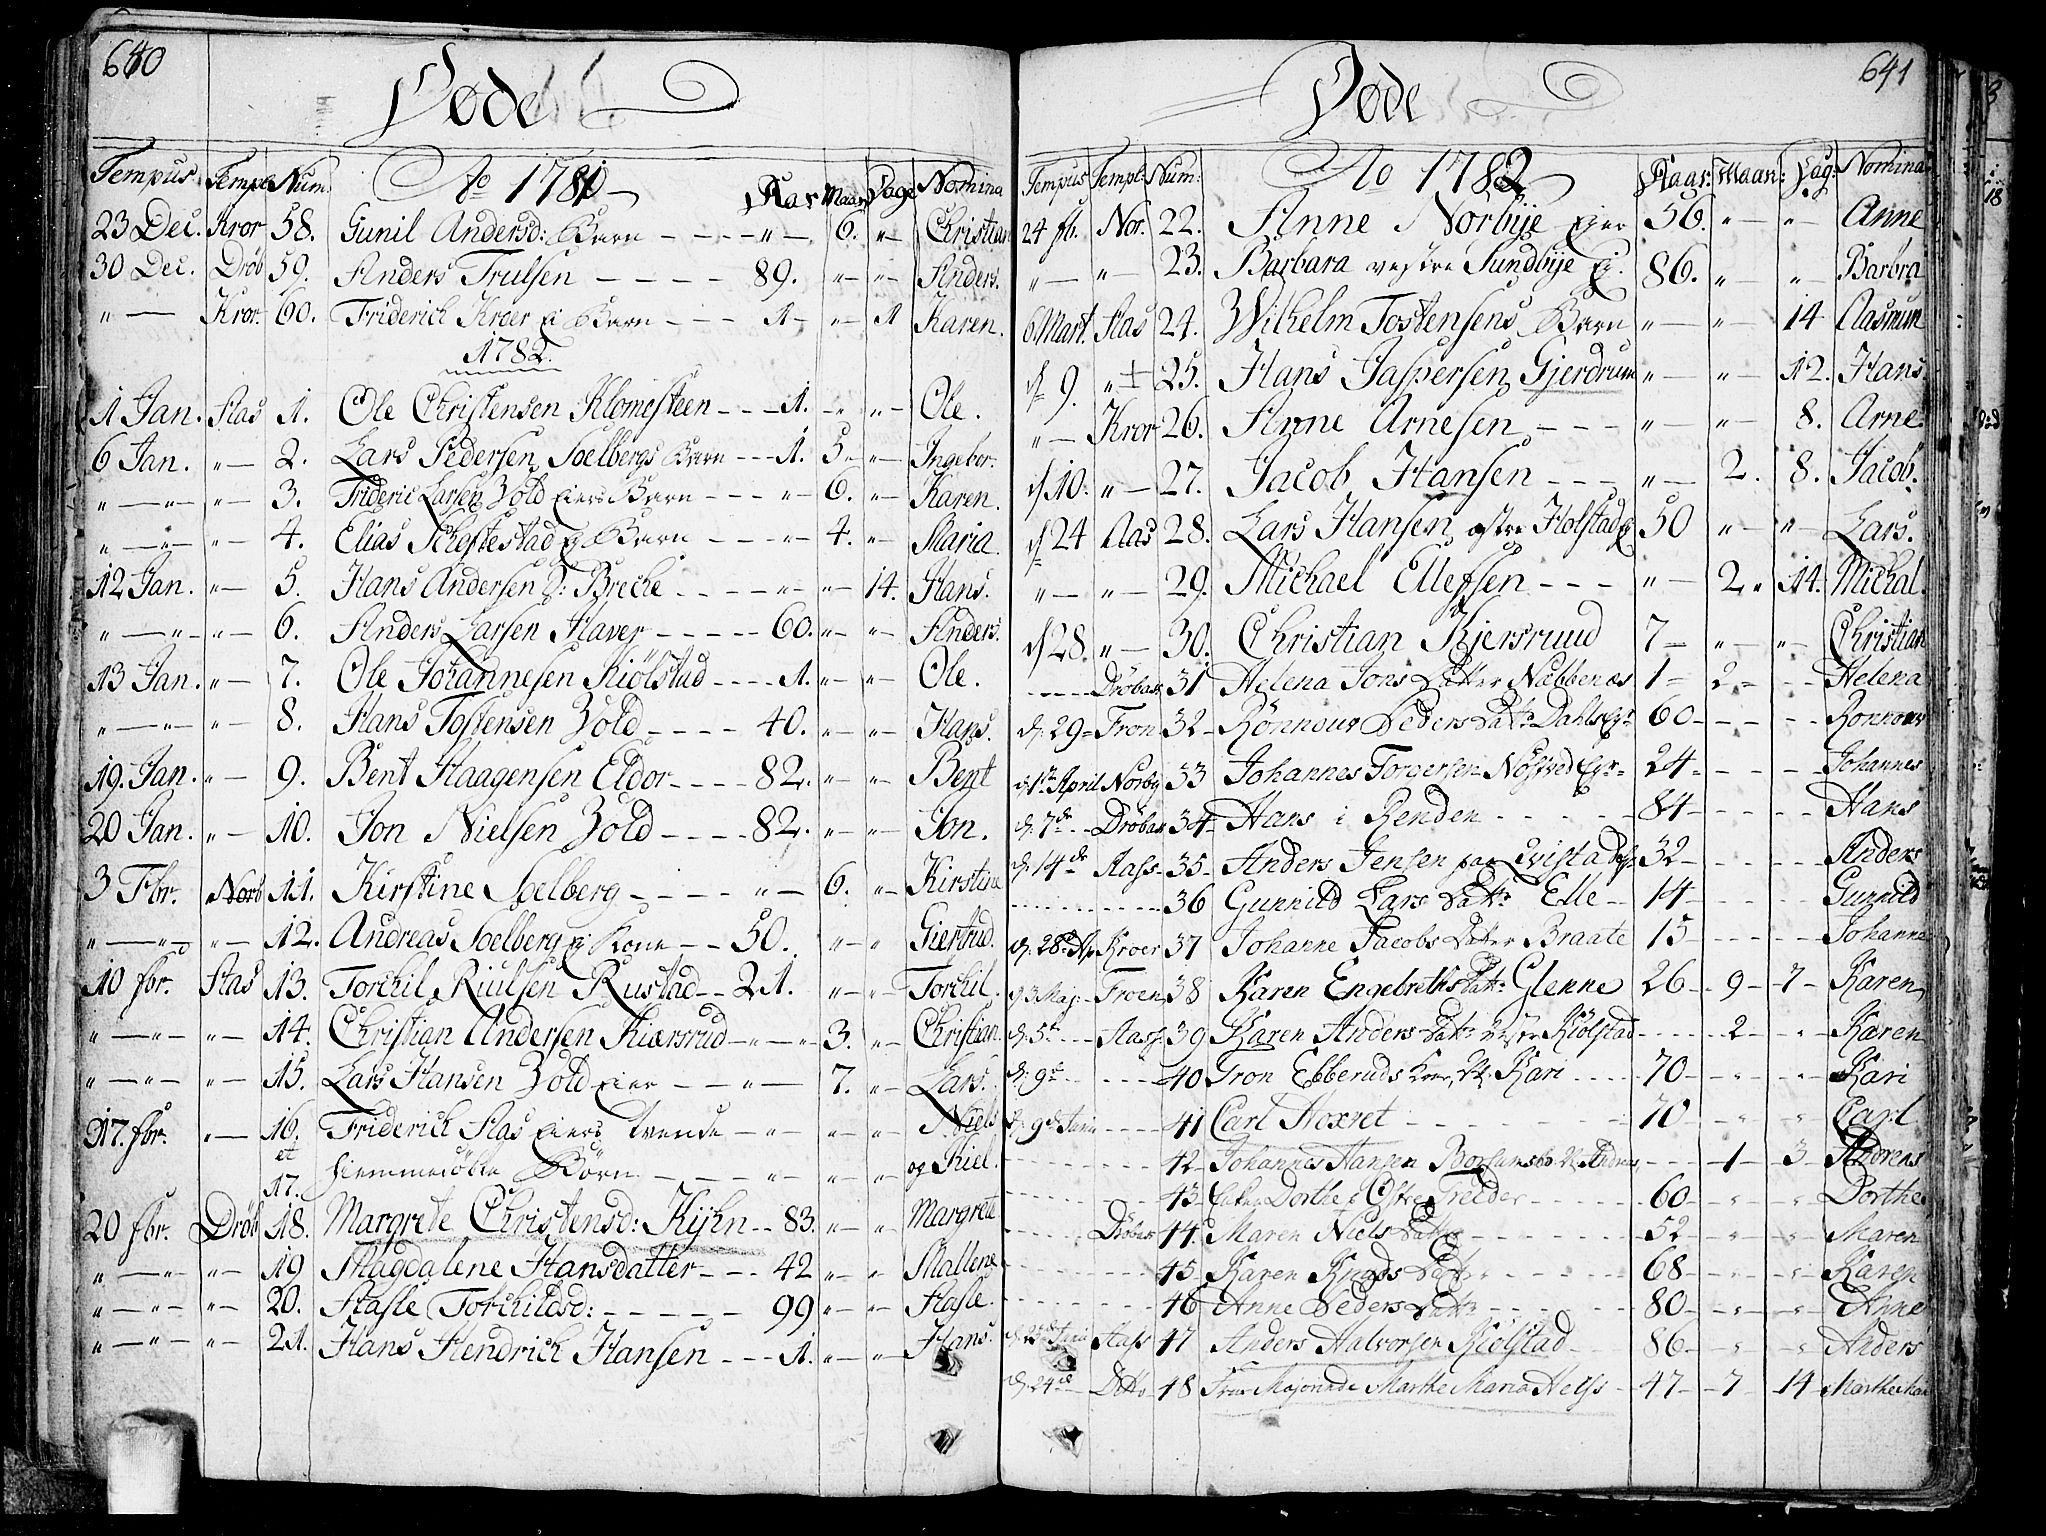 640
Døde
Tempus Templ: Num: Ao 1781 Aar Maan Dage Nomina
23 Dec. Kror 58. Gunil Andersd: Barn - - - - „ — 6. „ Christian
30 Dec. Dröb 59. Anders Trulsen - - - - 89. „ „ Anders.
„ — Kror. 60. Friderich Kroer Ej Barn - - - 1 - „ 1 Karen.
1782.
1 Jan. Aas 1. Ole Christensen Klomesteen - - - 1. „ „ Ole.
6 Jan. „ — 2. Lars Pedersen Solbergs Barn - - - 1. 5. „ Ingebor.
„ — „ — 3. Frideric Larsen Zold Eiers Barn - - - „ 6. „ Karen.
„ — „ — 4. Elias Schestestad Ej Barn - - - „ 4. „ Maria.
12 Jan. „ — 5. Hans Andersen O: Breche - - - - „ „ 14. Hans.
„ — „ — 6. Anders Larsen Haver - - - - - 60. „ „ Anders.
13 Jan. „ — 7. Ole Johannesen Kiölstad - - - - 1. „ „ Ole.
„ — „ — 8. Hans Tostensen Zold - - - - 40. „ „ Hans.
19. Jan. „ — 9. Bent Haagensen Eldor - - - - 82. „ „ Bent
20 Jan. „ — 10. Jon Nielsen Zold - - - - 82. „ „ Jon.
3 Fbr. Norb 11. Kirstine Solberg - - - - „ — 6. „ Kirstine
„ — „ — 12. Andreas Solberg Ej Kone - - 50. „ „ Giertrud.
10 fbr. Aas 13. Torchil Riulsen Rustad - - 21. „ „ Torchil.
„ — „ — 14. Christian Andersen Kiærsrud - „ - „ 3. „ Christian.
„ — „ — 15. Lars Hansen Zold Eier - - - „ — 7. „ Lars.
17. fbr. „ — 16. Friderich Aas Eiers tvende - „ — „ „ Niels
et hiemmedöbte Börn - - - - „ — „ „ og Kiel.
17.
20 fbr. Dröb 18. Margrete Christensd: Kyhn - - 83. „ „ Margrete
„ — „ — 19 Magdalene Hansdatter - - - 42 „ „ Mallene
„ — „ — 20. Aasle Torchildsd: - - - - - 99 „ „ Aasle.
„ — „ — 21. Hans Hendrich Hansen - - - 1. „ „ Hans.
641
Døde
Tempus Templ: Num: Ao 1782 Aar: Maan: Dag: Nomina
24 fb. Nor. 22. Anne Norbye Eier 56. „ „ Anne
„ — „ — 23. Barbara vestre Sundbye Ej. 86. „ „ Barbra
6 Mart. Aas 24. Wilhelm Tostensens Barn „ — „ 14 Aasmun
d. 9. „ 25. Hans Jaspersen Gjerdrum „ — „ 12. Hans.
„ — Kror 26. Arne Arnesen - - - „ — „ 8. Arne.
d. 10. „ — 27. Jacob Hansen - - - „ — 2. 8. Jacob.
d. 24 Aas 28. Lars Hansen östre Holstad Ej 50 „ „ Lars.
„ — „ — 29. Michael Ellefsen - - - „ — 2. 14. Michal.
d. 28. „ — 30. Christian Kjersruud 7 - „ „ Christian
- - - Dröbak 31 Helena Jons Datter Næbbenæs 1 - 2 - - - Helena
d. 29 - Fron 32 - Rönnour Peders Datr Dahls Eje 60 - - - Ronnour
d. 1te April Norby 33 Johannes Torgersen Nöstved Eje - 24 - - - Johannes
d. 7de - Dröbak 34 - Hans i Renden - - - - 84 - - - Hans
d. 14de Aass - 35 - Anders Jensen paa Qvistad Eje 32 - - - Anders
- - - - 36 Gunnild Lars Datr Elle - 14 - - - Gunnild
d. 28de Ap Kroer 37 Johanne Jacobs Datter Braate 15 - - - Johanne
d. 3 Maj. Froen 38 Karen Engebreths Datr Glenne 26 - 9 - 7 - Karen
d. 5te - Aass. 39 Karen Anders Datr Vestre Kiölstad - - 2 - „ Karen
d. 9de - - 40 Tron Ebberuds Kone, N. Kari - - 70 - „ „ Kari
d. 9de Junii - - 41 Carl Hoxvet - - - - 70 - „ „ Carl
- - - 42 - Johannes Hansen - - 1 - 3 Andreas
- - - 43 - Enke Dorthe i Østre Treider - - 60 - „ „ Dorthe
- - - Dröbak 44. Maren Niels Datter - - - 52 „ „ Maren
- - - 45 Karen Knuds Datr - - - - 68 - „ Karen
- - - 46 Anne Peders Datr - - - - 80 - „ Anne
d. 23de Junii Aass 47 Anders Halvorsen Kiölstad - - 86 - „ „ Anders
d. 24de - Ditto 48 Frue Majorinde Marthe Maria Helss - 47 - 7 - 14 Marthe Mar